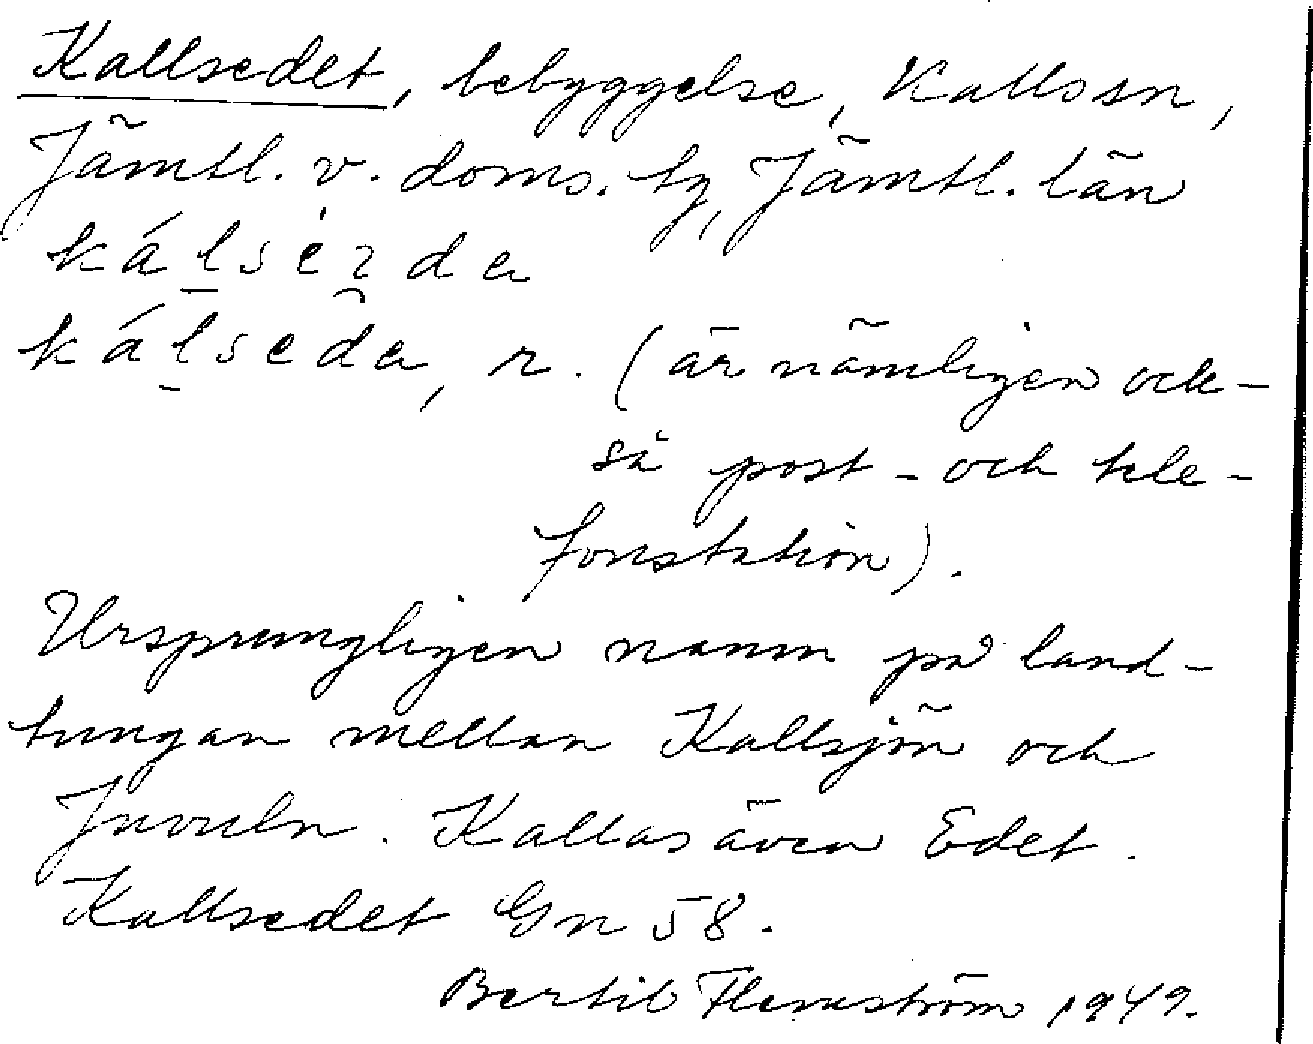 Kallsedet, bebyggelse, Kalls sn,
Jämtl. v. doms. tg, Jämtl. län
kálséda
kálseda, n. (är nämligen ock-
så post- och tele-
fonstation).
Ursprungligen namn på land-
tungan mellan Kallsjön och
Juvuln. Kallas även Edet.
Kallsedet Gn 58.
Bertil Flemström 1949.